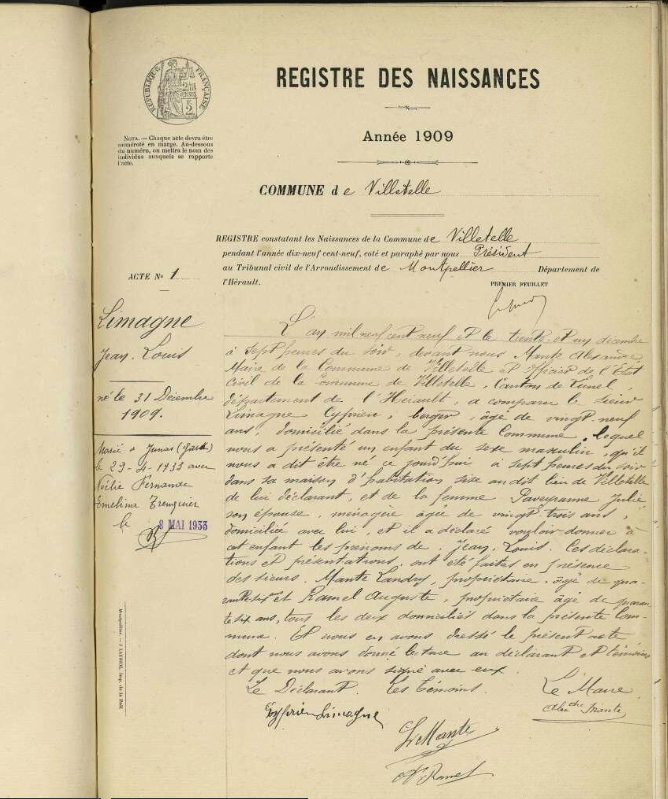 REPUBLIQUE FRANÇAISE
REGISTRE DES NAISSANCES
NOTA. — Chaque acte devra être
numéroté en marge. Au-dessous
du numéro, on mettra le nom des
individus auxquels se rapporte
l'acte.
Année 1909
COMMUNE de Villetelle
REGISTRE constatant les Naissances de la Commune de Villetelle
pendant l'année dix-neuf cent-neuf, coté et paraphé par nous Président
au Tribunal civil de l'Arrondissement de Montpellier Département de
l'Hérault.
PREMIER FEUILLET
ACTE No 1
Limagne
Jean, Louis
né le 31 Décembre
1909.
Marié à Junas (Gard)
le 29-4-1933 avec
Fernande
Emelina
le 8 MAI 1933
L'an mil neuf cent neuf et le trente et un décembre
à sept heures du soir, devant nous Mante
Maire de la Commune de Villetelle et officier de l'État
Civil de la Commune de Villetelle, Canton de Lunel,
département de l'Hérault, a comparu le sieur
Limagne Cyprien, berger, âgé de vingt neuf
ans, domicilié dans la présente Commune, lequel
nous a présenté un enfant du sexe masculin, qu'il
nous a dit être né ce jourd'hui à sept heures du soir
dans sa maison d'habitation sise au dit lieu de Villetelle
de lui déclarant, et de la femme Julie
son épouse, ménagère âgée de vingt trois ans,
domiciliée avec lui, et il a déclaré vouloir donner à
cet enfant les prénoms de Jean, Louis. Ces déclara-
tions et présentations, ont été faites en présence
des sieurs, Mante Landry, propriétaire, âgé de qua-
et Ramel Auguste, propriétaire âgé de
ans, tous les deux domiciliés dans la présente Com-
mune. Et nous en avons dressé le présent acte
dont nous avons donné lecture au déclarant et témoins
et que nous avons signé avec eux.
Le Déclarant. Les Témoins. Le Maire
Cyprien Limagne
Mante
Mante
Ramel